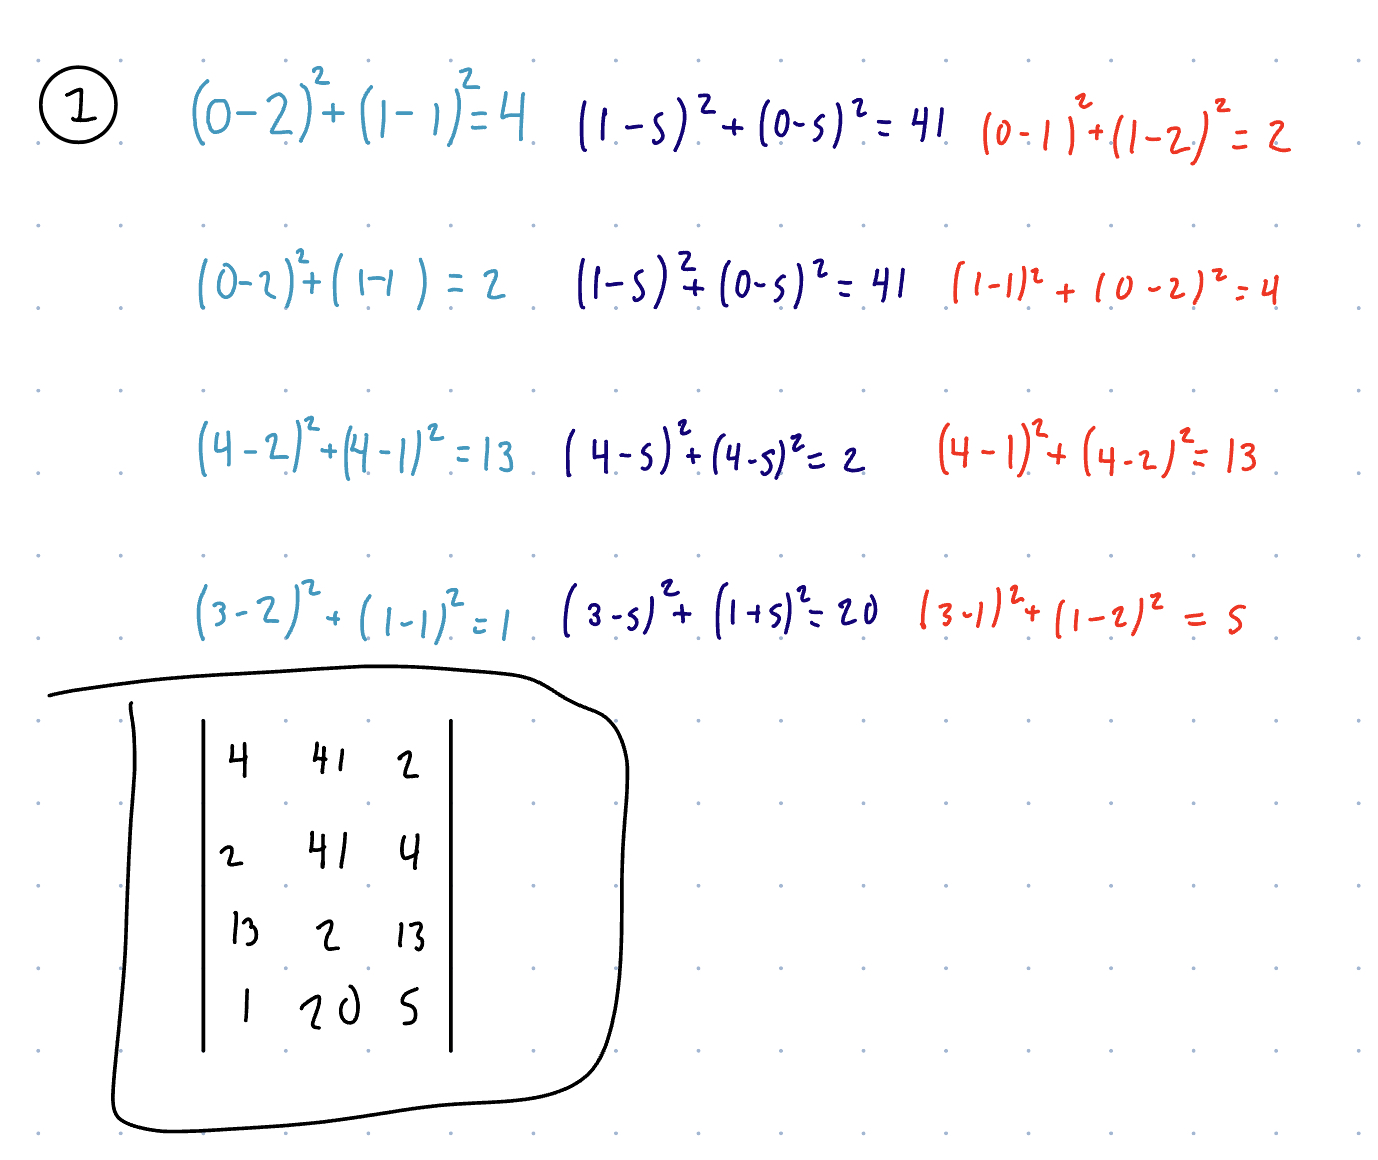 1 (0-2)²+(1-1)²=4 (1-5)²+(0-5)²=41 (0-1)²+(1-2)²=2
(0-2)²+(1-1)=2 (1-5)²+(0-5)²=41 (1-1)²+(0-2)²=4
(4-2)²+(4-1)²=13 (4-5)²+(4-5)²=2 (4-1)²+(4-2)²=13
(3-2)²+(1-1)²=1 (3-5)²+(1+5)²=20 (3-1)²+(1-2)²=5
4 41 2
2 41 4
13 2 13
1 20 5